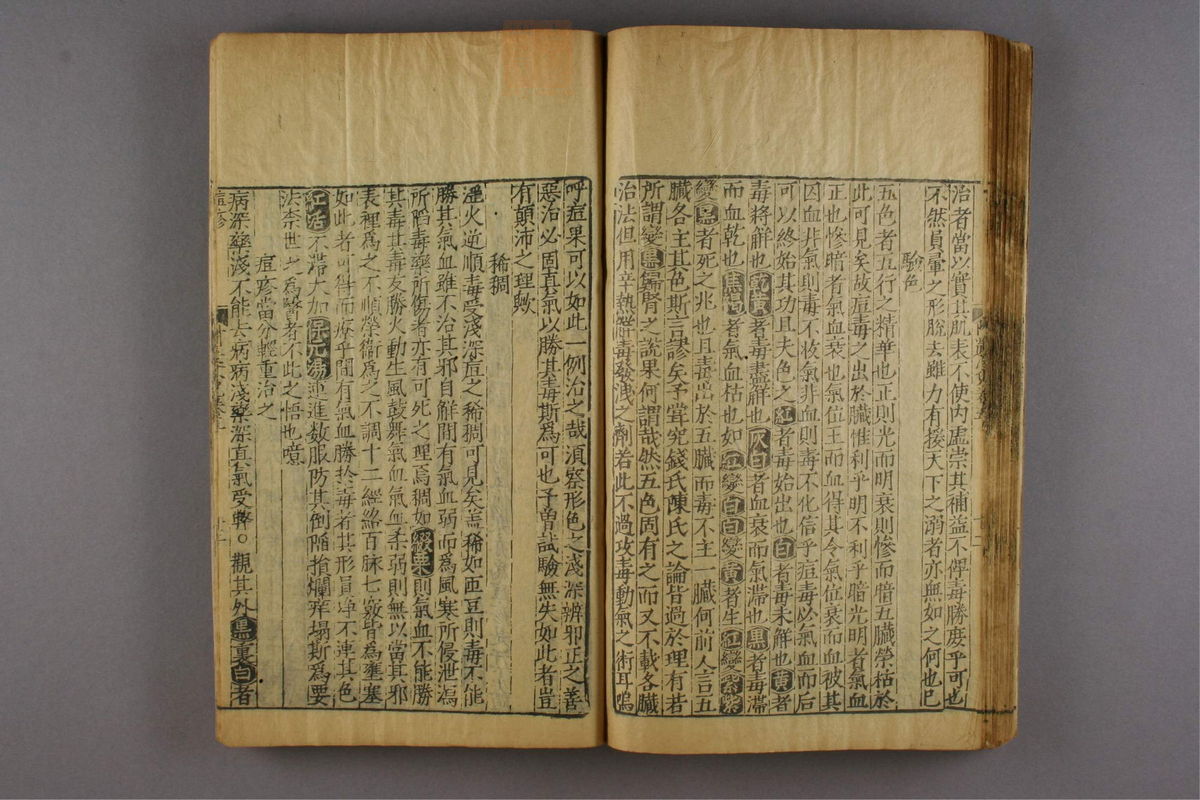 治者當以實其肌表不使內虛崇其補益不俾毒勝庶乎可也
不然員暈之形脫去雖力有援天下之溺者亦無如之何也已
驗色
五色者五行之精華也正則光而明衰則慘而暗五臟榮枯於
此可見矣故痘毒之出於臟惟利乎明不利乎暗光明者氣血
正也慘暗者氣血衰也氣位王而血得其令氣位衰而血被其
因血非氣則毒不收氣非血則毒不化信乎痘毒必氣血而后
可以終始其功且夫色之紅者毒始出也白者毒未解也黃者
毒將解也乾黃者毒盡解也灰白者血衰而氣滯也黑者毒滯
而血乾也焦褐者氣血枯也如紅變白白變黃者生紅變紫紫
變黑者死之兆也且毒出於五臟而毒不主一臟何前人言五
臟各主其色斯言謬矣予嘗究錢氏陳氏之論皆過於理有若
所謂變黑歸腎之說果何謂哉然五色固有之而又不載各臟
治法但用辛熱醫毒發洩之劑若此不過攻毒動氣之術耳嗚
呼痘果可以如此一例治之哉須察形色之淺深辨邪正之善
惡治必固真氣以勝其毒斯爲可也予曾試驗無失如此者豈
有顛沛之理歟
稀稠
淫火逆順毒受淺深痘之稀稠可見矣盖稀如匝豆則毒不能
勝其氣血雖不治其邪自解間有氣血弱而爲風寒所侵泄瀉
所陷毒藥所傷者亦有可死之理焉稠如綴粟則氣血不能勝
其毒其毒友勝火動生風鼓舞氣血氣血柔弱則無以當其邪
表裡爲之不順榮衛爲之不調十二經絡百脉七竅皆爲壅塞
如此者可得而療乎間有氣血勝於毒者其形員淨不連其色
紅活不滯大加保元湯連進數服防其倒陷搶爛痒塌斯爲要
法柰世之爲醫者不此之悟也噫
痘疹當分輕重治之
病深藥淺不能去病病淺藥深真氣受弊○觀其外黑裏白者
痘疹